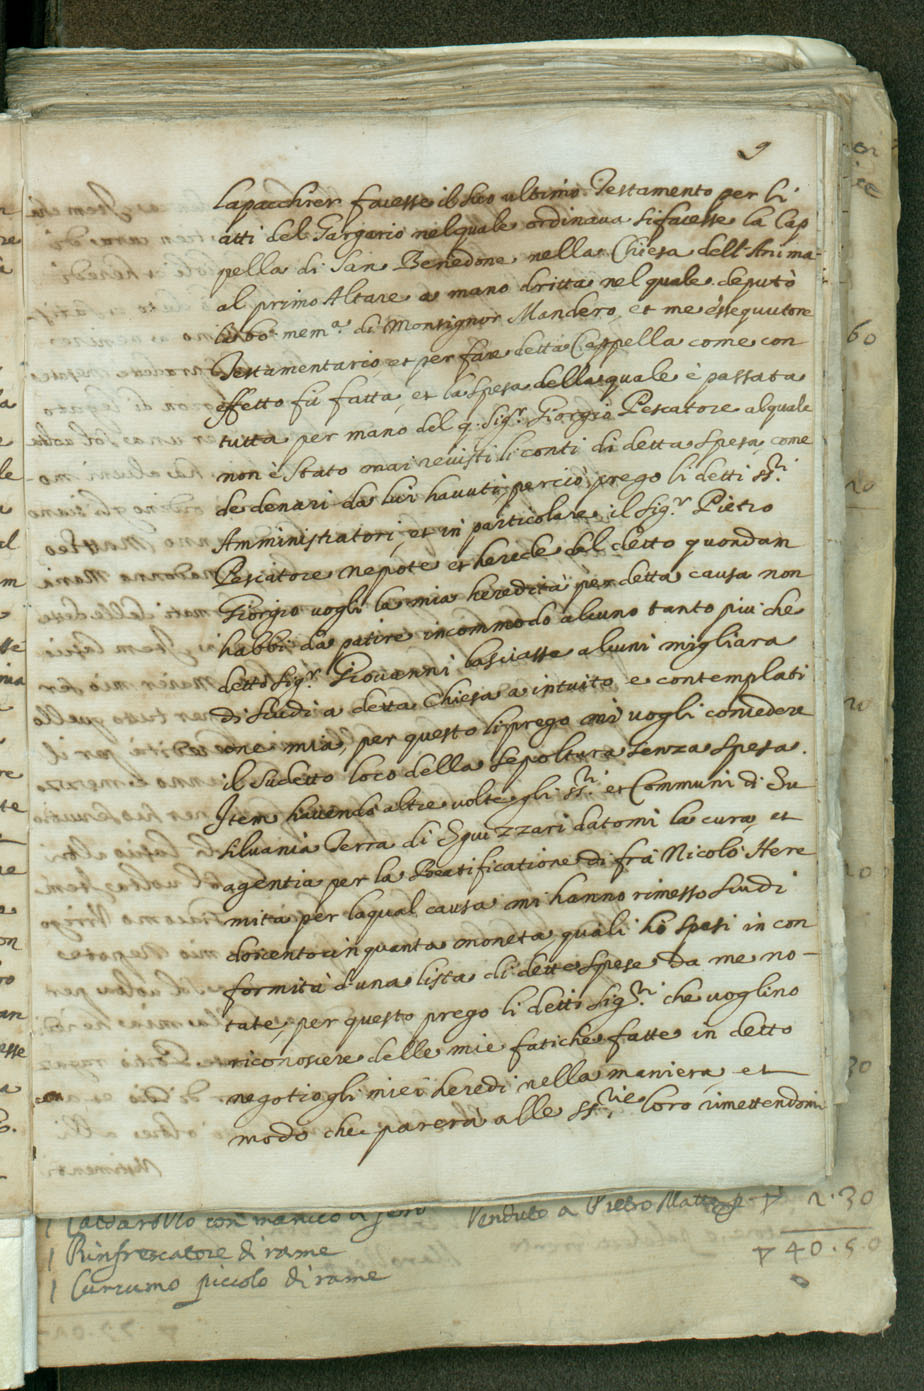 9
Lapacchirer facesse il suo ultimo Testamento per li
atti del Gargario nel quale ordinava si facesse la Cap
pella di San Benedone nella Chiesa dell'Anima
al primo Altare a mano dritta nel quale deputò
la bo: mem.ª di Monsignor Mandero et me essequutore
Testamentario et per fare detta Cappella come con
effetto fù fatta, et la spesa della quale è passata
tutta per mano del q. Sig.r Giorgio Pescatore al quale
non è stato mai revisti li conti di detta spesa, come
de denari da lui havuti, perciò prego li detti SS.ri
Amministratori, et in particolare il Sig.r Pietro
Pescatore nepote et herede del detto quondam
Giorgio vogli la mia heredità per detta causa non
habbi da patire incommodo alcuno tanto più che
detto Sig.r Giovanni lasciasse alcuni migliara
di scudi a detta Chiesa a intuito e contemplati
one mia, per questo li prego mi vogli concedere
il sudetto loco della sepoltura senza spesa.
Item havendo altre volte gli SS.ri et Communi di Su
silvania Terra di Sguizzari datomi la cura, et
agentia per la Beatificatione di frà Nicolò Here
mita per laqual causa mi hanno rimesso scudi
docento cinquanta moneta quali hò spesi in con
formità d'una lista di dette spese da me no-
tate, per questo prego li detti Sig.ri che voglino
riconoscere delle mie fatiche fatte in detto
negotio gli miei heredi nella maniera, et
modo che parerà alle SS.rie loro rimettendomi
1 con manico di ferro Venduto a Pietro 2.30
1 Rinfrescatore di rame 40.5.0
1 piccolo di rame
60
20
30